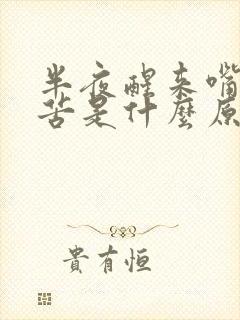 半夜醒来嘴
苦是什麼原
貴有恒